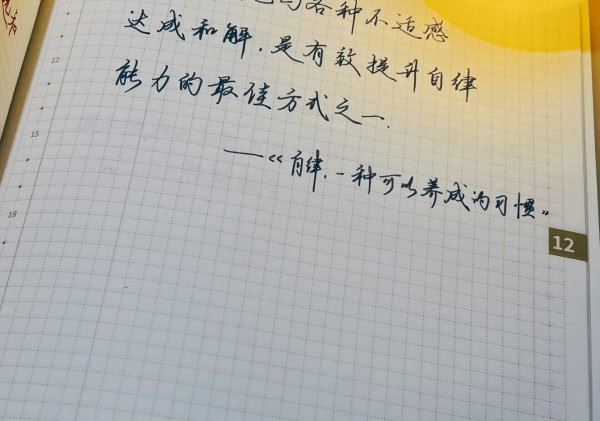 各种不适感
达成和解，是有效提升自律
能力的最佳方式之一.
——《自律，一种可以养成的习惯》
12
15
18
12